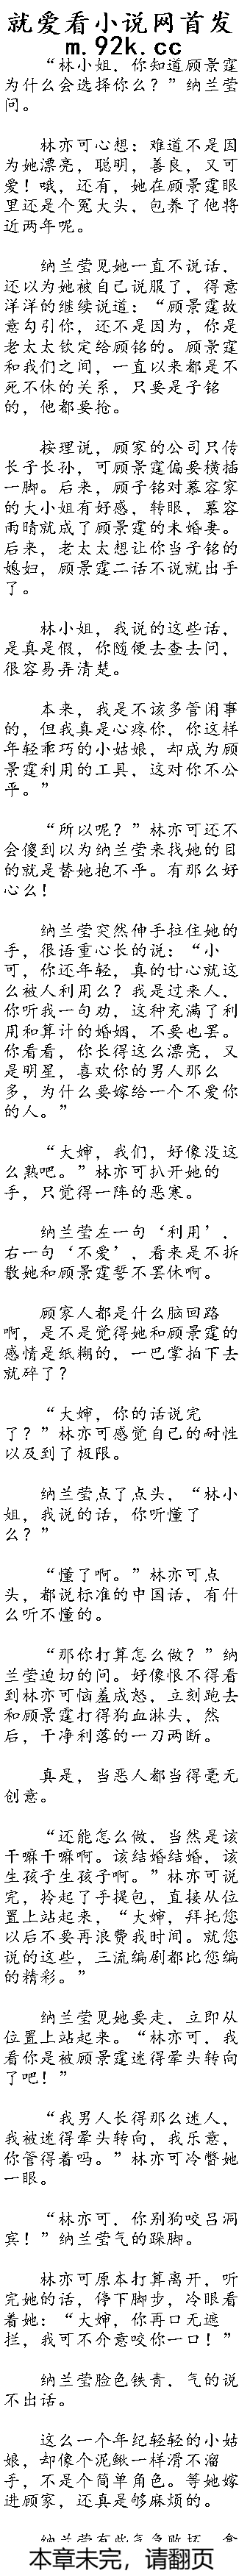 就爱看小说网首发
m.92k.cc
“林小姐，你知道顾景霆
为什么会选择你么？”纳兰莹
问。
林亦可心想：难道不是因
为她漂亮，聪明，善良，又可
爱！哦，还有，她在顾景霆眼
里还是个冤大头，包养了他将
近两年呢。
纳兰莹见她一直不说话，
还以为她被自己说服了，得意
洋洋的继续说道：“顾景霆故
意勾引你，还不是因为，你是
老太太钦定给顾铭的。顾景霆
和我们之间，一直以来都是不
死不休的关系，只要是子铭
的，他都要抢。
按理说，顾家的公司只传
长子长孙，可顾景霆偏要横插
一脚。后来，顾子铭对慕容家
的大小姐有好感，转眼，慕容
雨晴就成了顾景霆的未婚妻。
后来，老太太想让你当子铭的
媳妇，顾景霆二话不说就出手
了。
林小姐，我说的这些话，
是真是假，你随便去查去问，
很容易弄清楚。
本来，我是不该多管闲事
的，但我真是心疼你，你这样
年轻乖巧的小姑娘，却成为顾
景霆利用的工具，这对你不公
平。”
“所以呢？”林亦可还不
会傻到以为纳兰莹来找她的目
的就是替她抱不平。有那么好
心么！
纳兰莹突然伸手拉住她的
手，很语重心长的说：“小
可，你还年轻，真的甘心就这
么被人利用么？我是过来人，
你听我一句劝，这种充满了利
用和算计的婚姻，不要也罢。
你看看，你长得这么漂亮，又
是明星，喜欢你的男人那么
多，为什么要嫁给一个不爱你
的人。”
“大婶，我们，好像没这
么熟吧。”林亦可扒开她的
手，只觉得一阵的恶寒。
纳兰莹左一句‘利用’，
右一句‘不爱’，看来是不拆
散她和顾景霆誓不罢休啊。
顾家人都是什么脑回路
啊，是不是觉得她和顾景霆的
感情是纸糊的，一巴掌拍下去
就碎了？
“大婶，你的话说完
了？”林亦可感觉自己的耐性
以及到了极限。
纳兰莹点了点头，“林小
姐，我说的话，你听懂了
么？”
“懂了啊。”林亦可点
头，都说标准的中国话，有什
么听不懂的。
“那你打算怎么做？”纳
兰莹迫切的问。好像恨不得看
到林亦可恼羞成怒，立刻跑去
和顾景霆打得狗血淋头，然
后，干净利落的一刀两断。
真是，当恶人都当得毫无
创意。
“还能怎么做，当然是该
干嘛干嘛啊。该结婚结婚，该
生孩子生孩子啊。”林亦可说
完，拎起了手提包，直接从位
置上站起来，“大婶，拜托您
以后不要再浪费我时间。就您
说的这些，三流编剧都比您编
的精彩。”
纳兰莹见她要走，立即从
位置上站起来。“林亦可，我
看你是被顾景霆迷得晕头转向
了吧！”
“我男人长得那么迷人，
我被迷得晕头转向，我乐意，
你管得着吗。”林亦可冷瞥她
一眼。
“林亦可，你别狗咬吕洞
宾！”纳兰莹气的跺脚。
林亦可原本打算离开，听
完她的话，停下脚步，冷眼看
着她：“大婶，你再口无遮
拦，我可不介意咬你一口！”
纳兰莹脸色铁青，气的说
不出话。
这么一个年纪轻轻的小姑
娘，却像个泥鳅一样滑不溜
手，不是个简单角色。等她嫁
进顾家，还真是够麻烦的。
本章未完，请翻页